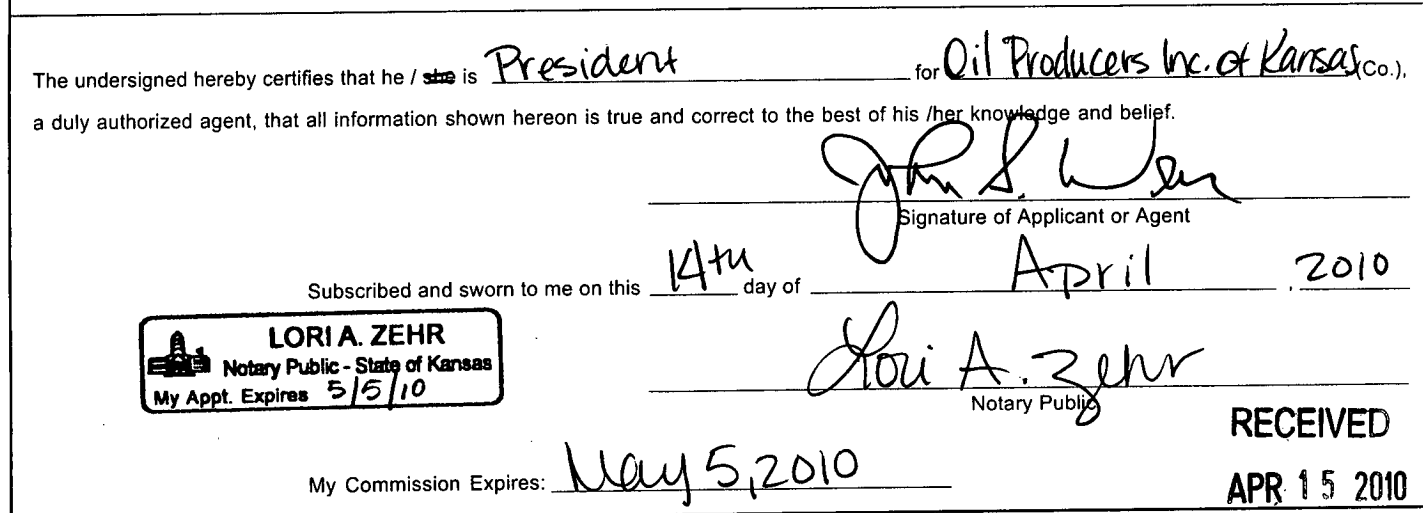 The undersigned hereby certifies that he / she is President for Oil Producers Inc. of Kansas (Co.),
a duly authorized agent, that all information shown hereon is true and correct to the best of his /her knowledge and belief.
John S. Weir
Signature of Applicant or Agent
Subscribed and sworn to me on this 14th day of April, 2010
LORI A. ZEHR
Notary Public - State of Kansas
My Appt. Expires 5/5/10
Lori A. Zehr
Notary Public
RECEIVED
My Commission Expires: May 5, 2010
APR 15 2010